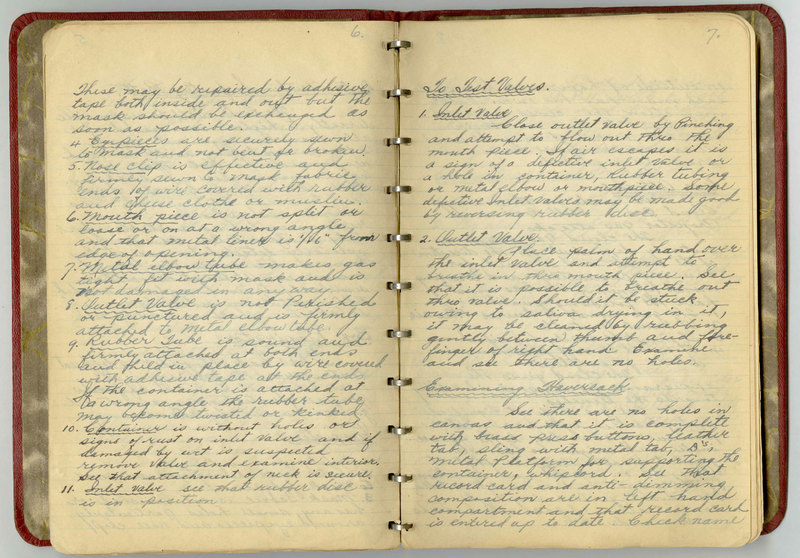 6.
These may be repaired by adhesive
tape both inside and out but the
mask should be exchanged as
soon as possible.
4 Eyepieces are securely sewn
to mask and not bent or broken.
5. Nose clip is effective and
firmly sewn to mask fabric
ends of wire covered with rubber
and cheese clothe or muslin.
6. Mouth piece is not split or
loose or on at a wrong angle
and that metal liner is 1/16" from
edge of opening.
7. Metal elbow tube makes gas
tight fit with mask and is
not damaged in anyway
8. Outlet Valve is not Perished
or punctured and is firmly
attached to metal elbow tube.
9. Rubber Tube is sound and
firmly attached at both ends
and held in place by wire covered
with adhesive tape at the end
If the container is attached at
a wrong angle the rubber tube
may become twisted or kinked
10. Container is without holes or
signs of rust on inlet valve and if
damaged by wet is suspected
remove valve and examine interior.
See that attachment of neck is secure.
11. Inlet Valve see that rubber disc
is in position.
7.
To Test Valves.
1. Inlet Valve
Close outlet valve by Pinching
and attempt to blow out thro the
mouth piece. If air escapes it is
a sign of a defective inlet valve or
a hole in container, Rubber tubing
or metal elbow or mouthpiece. Some
defective Inlet Valves may be made good
by reversing rubber disc.
2. Outlet Valve.
Place palm of hand over
the inlet valve and attempt to
breathe in thro mouth piece. See
that it is possible to breathe out
thro valve. Should it be stuck
owing to saliva drying in it,
it may be cleaned by rubbing
gently between thumb and fore-
finger of right hand. Examine
and see there are no holes.
Examining Haversack
See there are no holes in
canvas and that it is complete
with brass press buttons, leather
tab, sling with metal tab, D's,
Metal Platform for supporting the
container, & whipcord. See that
record card and anti-dimming
composition are in left hand
compartment and that record card
is entered up to date. Check name